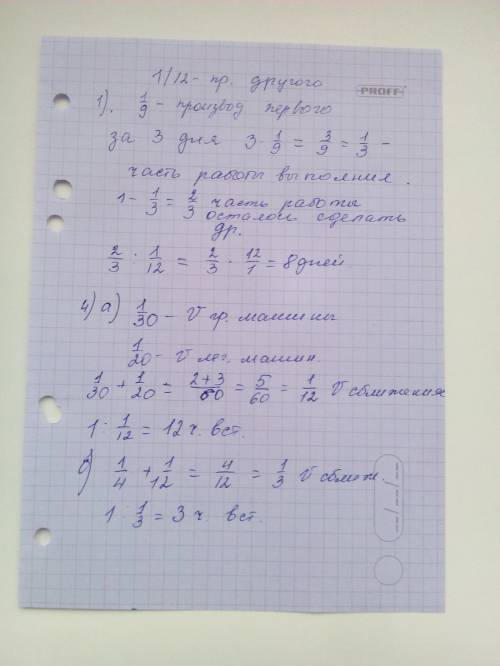 1/12 - пр. другого
PROFF
1). 1/9 - производ первого
за 3 дня 3 · 1/9 = 3/9 = 1/3 -
часть работы выполнил.
1 - 1/3 = 2/3 часть работы
осталось сделать
др.
2/3 : 1/12 = 2/3 · 12/1 = 8 дней
4) а) 1/30 - V гр. машины
1/20 - V лег. машин.
1/30 + 1/20 = 2+3/60 = 5/60 = 1/12 V сближения
1 : 1/12 = 12 ч. вст.
б) 1/4 + 1/12 = 4/12 = 1/3 V сближ.
1 : 1/3 = 3 ч. вст.